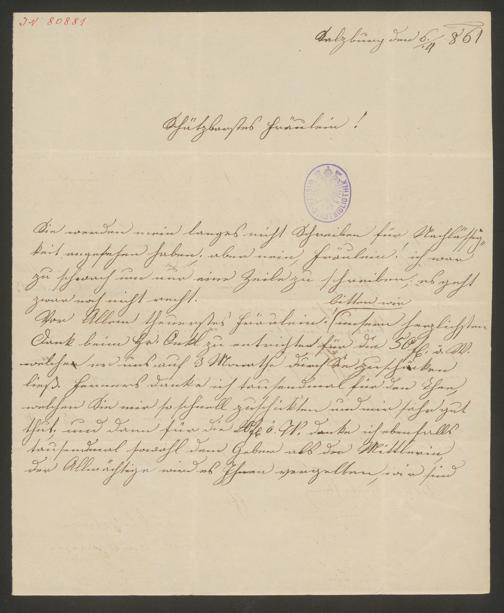 IN 80881
Salzburg den 6/4 861
Schätzbarstes Fräulein!
Sie werden mein langes nicht Schreiben für Nachlässig=
keit angesehen haben, aber nein, Fräulein! ich war
zu schwach um nur eine Zeile zu schreiben, es geht
zwar noch nicht recht.
bitten wir
Vor Allem theuerstes Fräulein! unsern herzlichsten
Dank beim Hr. zu entrichten für die 50 f. ö. W.
welche er uns auf 3 Monathe durch Sie zuschicken
ließ. Ferners danke ich tausendmal für den Thee,
welchen Sie mir so schnell zuschickten und mir sehr gut
thut, und dann für die f. ö. W. danke ich ebenfalls
tausendmal sowohl dem Geber als der Mittlerin,
der Allmächtige wird es Ihnen vergelten, wir sind